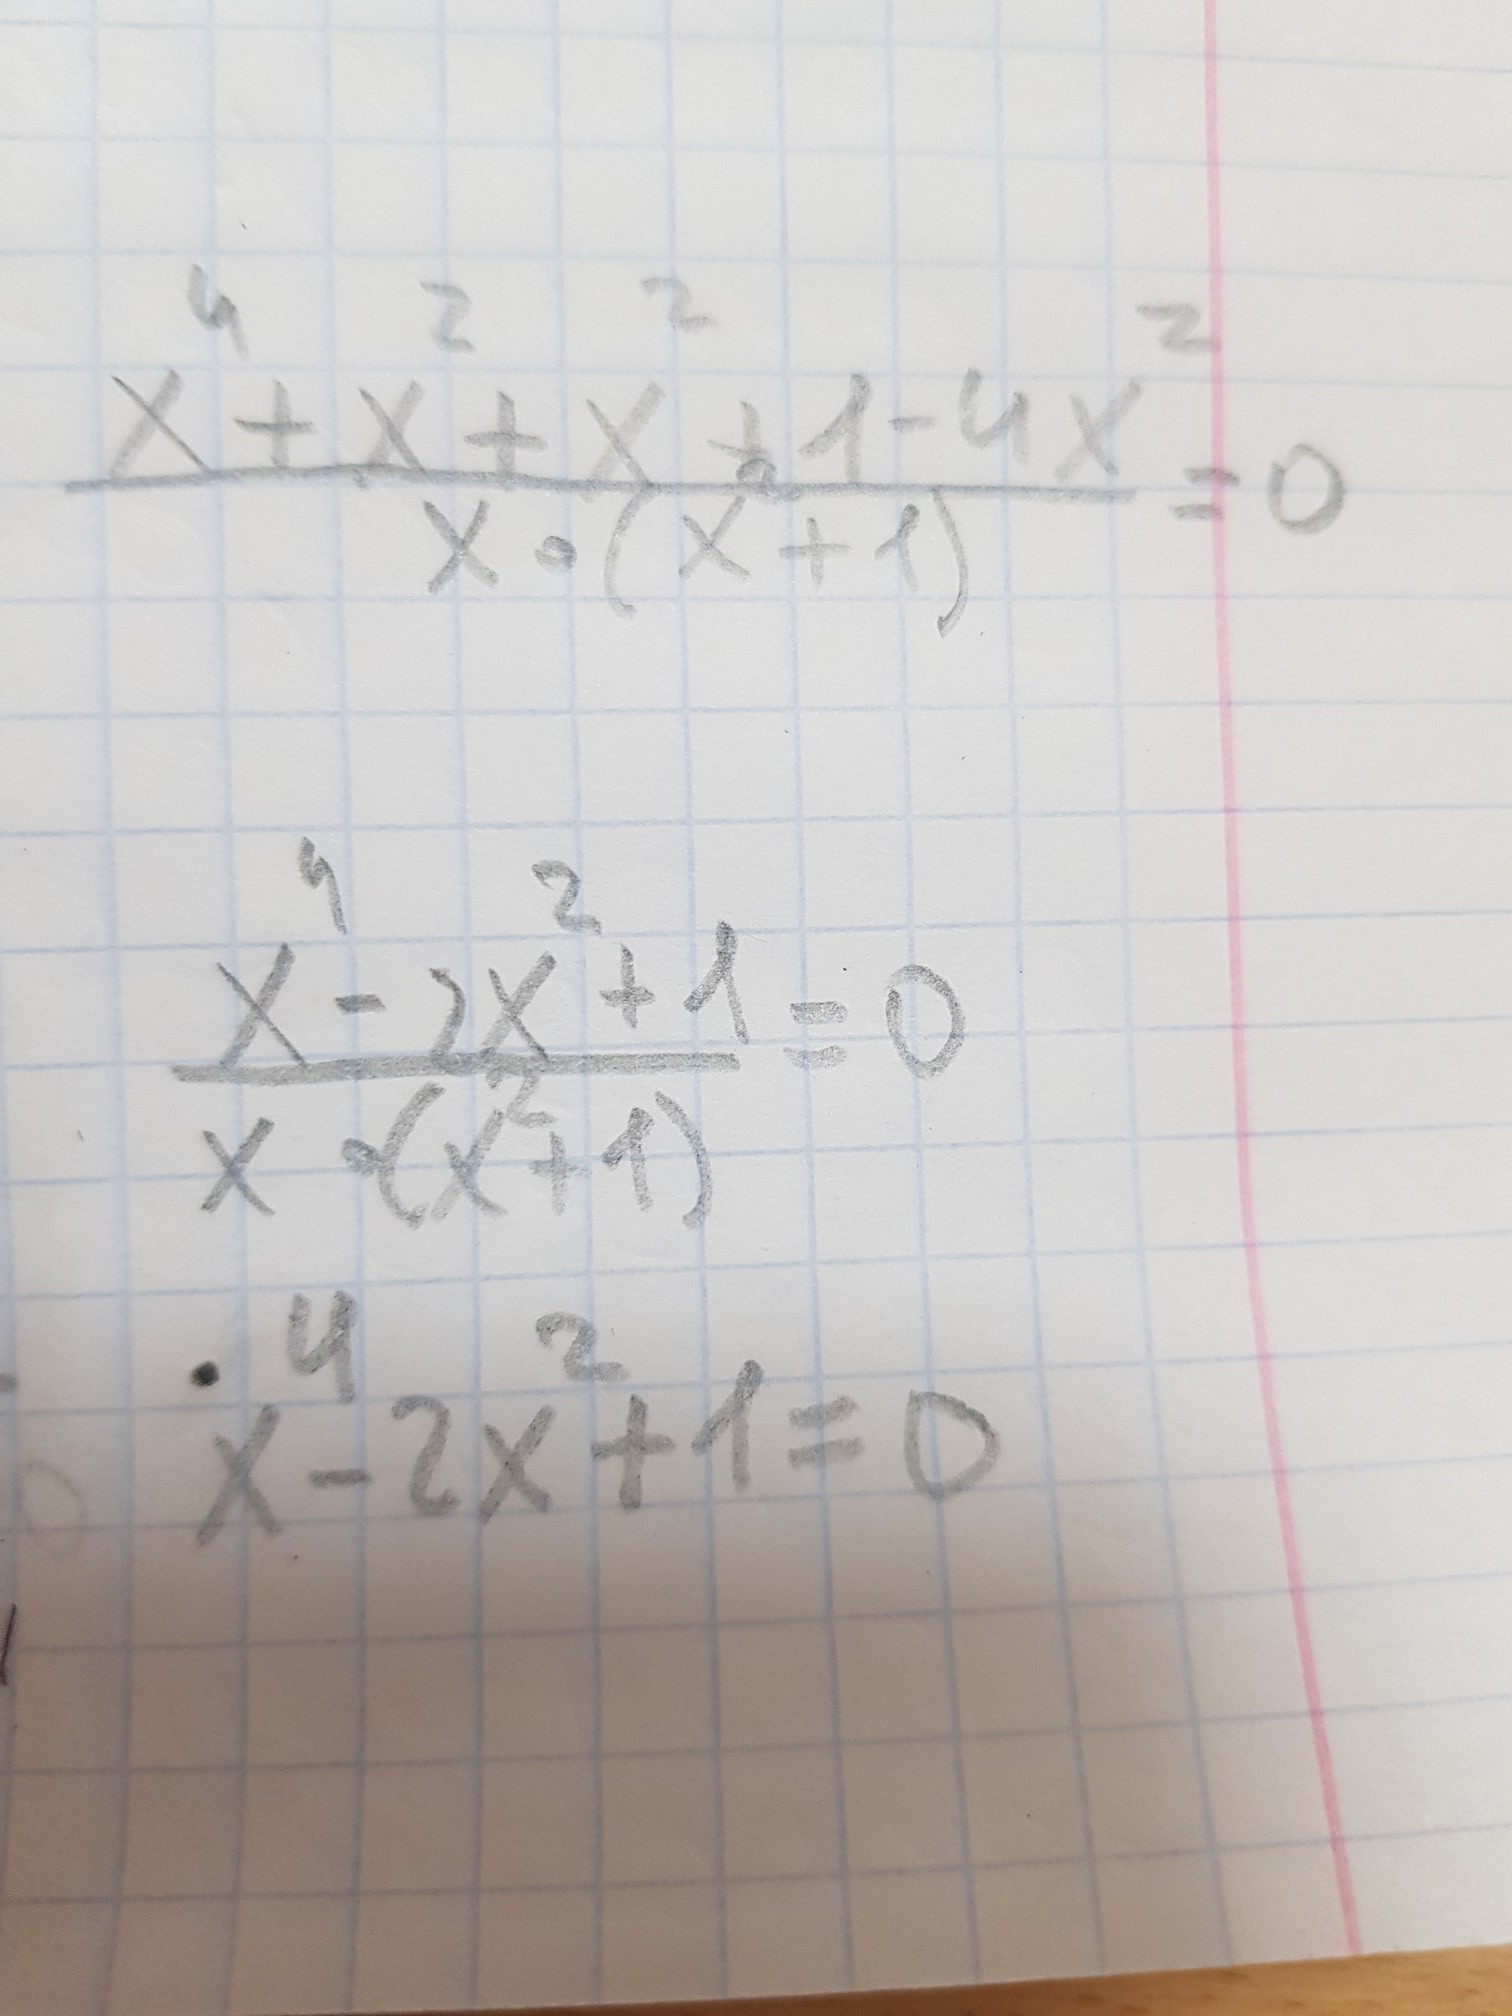 x⁴ + x² + x² + 1 - 4x² = 0
x · (x² + 1)
x⁴ - 2x² + 1 = 0
x · (x² + 1)
x⁴ - 2x² + 1 = 0